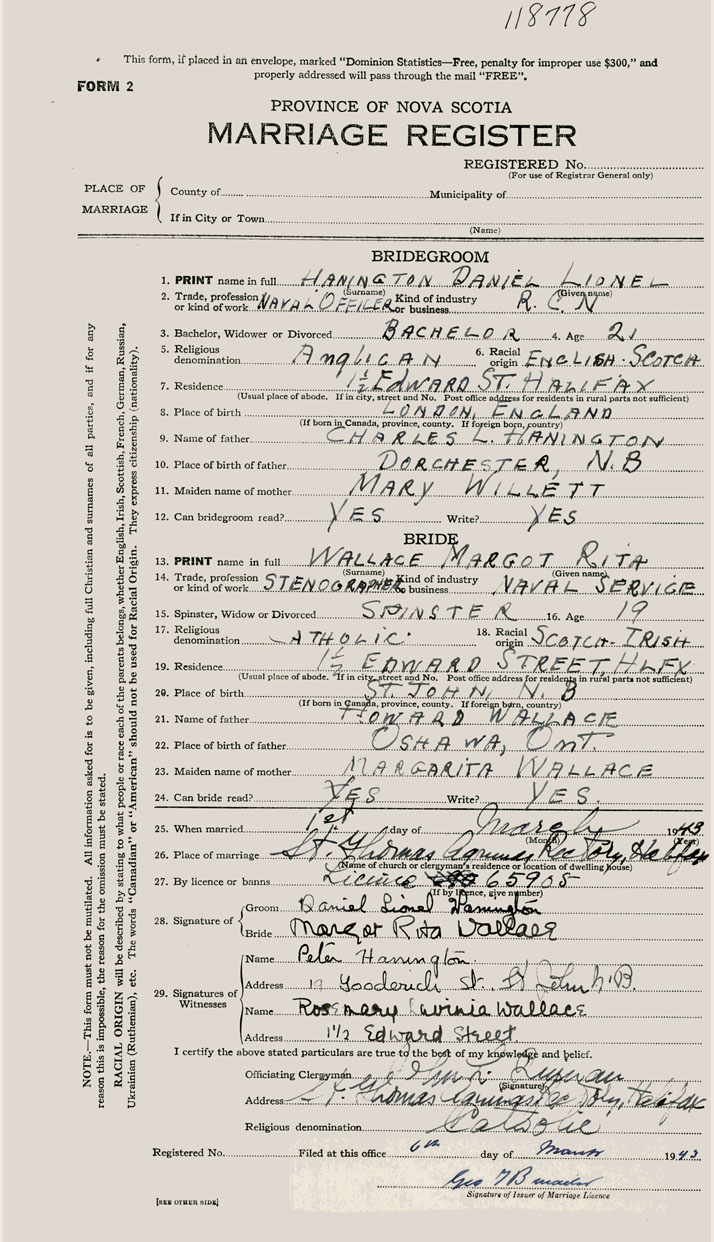 118778
This form, if placed in an envelope, marked "Dominion Statistics—Free, penalty for improper use $300," and
properly addressed will pass through the mail "FREE".
FORM 2
PROVINCE OF NOVA SCOTIA
MARRIAGE REGISTER
REGISTERED No.
(For use of Registrar General only)
PLACE OF MARRIAGE
County of Municipality of
If in City or Town
(Name)
BRIDEGROOM
1. PRINT name in full HANINGTON DANIEL LIONEL
(Surname) (Given name)
2. Trade, profession or kind of work NAVAL OFFICER Kind of industry or business R.C.N
3. Bachelor, Widower or Divorced BACHELOR 4. Age 21
5. Religious denomination ANGLICAN 6. Racial origin ENGLISH-SCOTCH
7. Residence 1½ EDWARD ST. HALIFAX
(Usual place of abode. If in city, street and No. Post office address for residents in rural parts not sufficient)
8. Place of birth LONDON, ENGLAND
(If born in Canada, province, county. If foreign born, country)
9. Name of father CHARLES L. HANINGTON
10. Place of birth of father DORCHESTER, N.B
11. Maiden name of mother MARY WILLETT
12. Can bridegroom read? YES Write? YES
BRIDE
13. PRINT name in full WALLACE MARGOT RITA
(Surname) (Given name)
14. Trade, profession or kind of work STENOGRAPHER Kind of industry or business NAVAL SERVICE
15. Spinster, Widow or Divorced SPINSTER 16. Age 19
17. Religious denomination CATHOLIC 18. Racial origin SCOTCH-IRISH
19. Residence 1½ EDWARD STREET, HLFX
(Usual place of abode. If in city, street and No. Post office address for residents in rural parts not sufficient)
20. Place of birth ST. JOHN, N.B
(If born in Canada, province, county. If foreign born, country)
21. Name of father HOWARD WALLACE
22. Place of birth of father OSHAWA, ONT.
23. Maiden name of mother MARGARITA WALLACE
24. Can bride read? YES Write? YES.
25. When married 1st day of March 1943
(Month) (Year)
26. Place of marriage St. Thomas Aquinas Rectory, Halifax
(Name of church or clergyman's residence or location of dwelling house)
27. By licence or banns Licence 65908
(If by licence, give number)
28. Signature of
Groom Daniel Lionel Hanington
Bride Margot Rita Wallace
29. Signatures of Witnesses
Name Peter Hanington.
Address 19 Gooderich St. St John N.B.
Name Rosemary Lavinia Wallace
Address 1½ Edward Street.
I certify the above stated particulars are true to the best of my knowledge and belief.
Officiating Clergyman
(Signature)
Address St. Thomas Aquinas Rectory, Halifax
Religious denomination Catholic
Registered No. Filed at this office 6th day of March 1943
Geo
Signature of Issuer of Marriage Licence
[SEE OTHER SIDE]
NOTE.—This form must not be mutilated. All information asked for is to be given, including full Christian and surnames of all parties, and if for any
reason this is impossible, the reason for the omission must be stated.
RACIAL ORIGIN will be described by stating to what people or race each of the parents belongs, whether English, Irish, Scottish, French, German, Russian,
Ukrainian (Ruthenian), etc. The words "Canadian" or "American" should not be used for Racial Origin. They express citizenship (nationality).